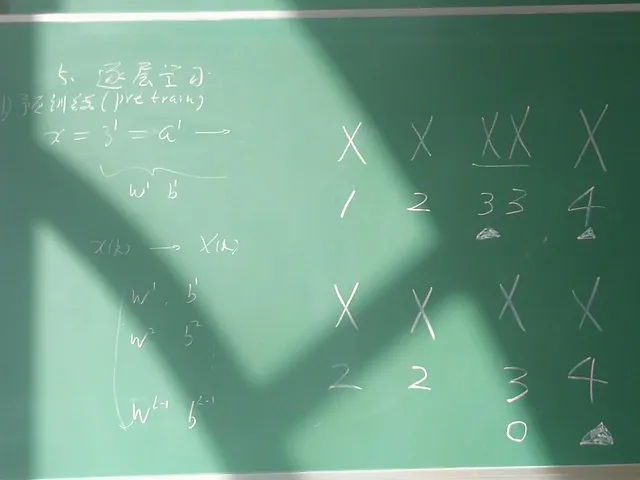 5. 逐层学习
1) 预训练(pretrain)
x = z¹ = a¹ →
w¹ b¹
x(k) → X(k)
w¹ b¹
w² b²
w^L-1 b^L-1
X X XX X
1 2 33 4
X X X X
2 2 3 4
0